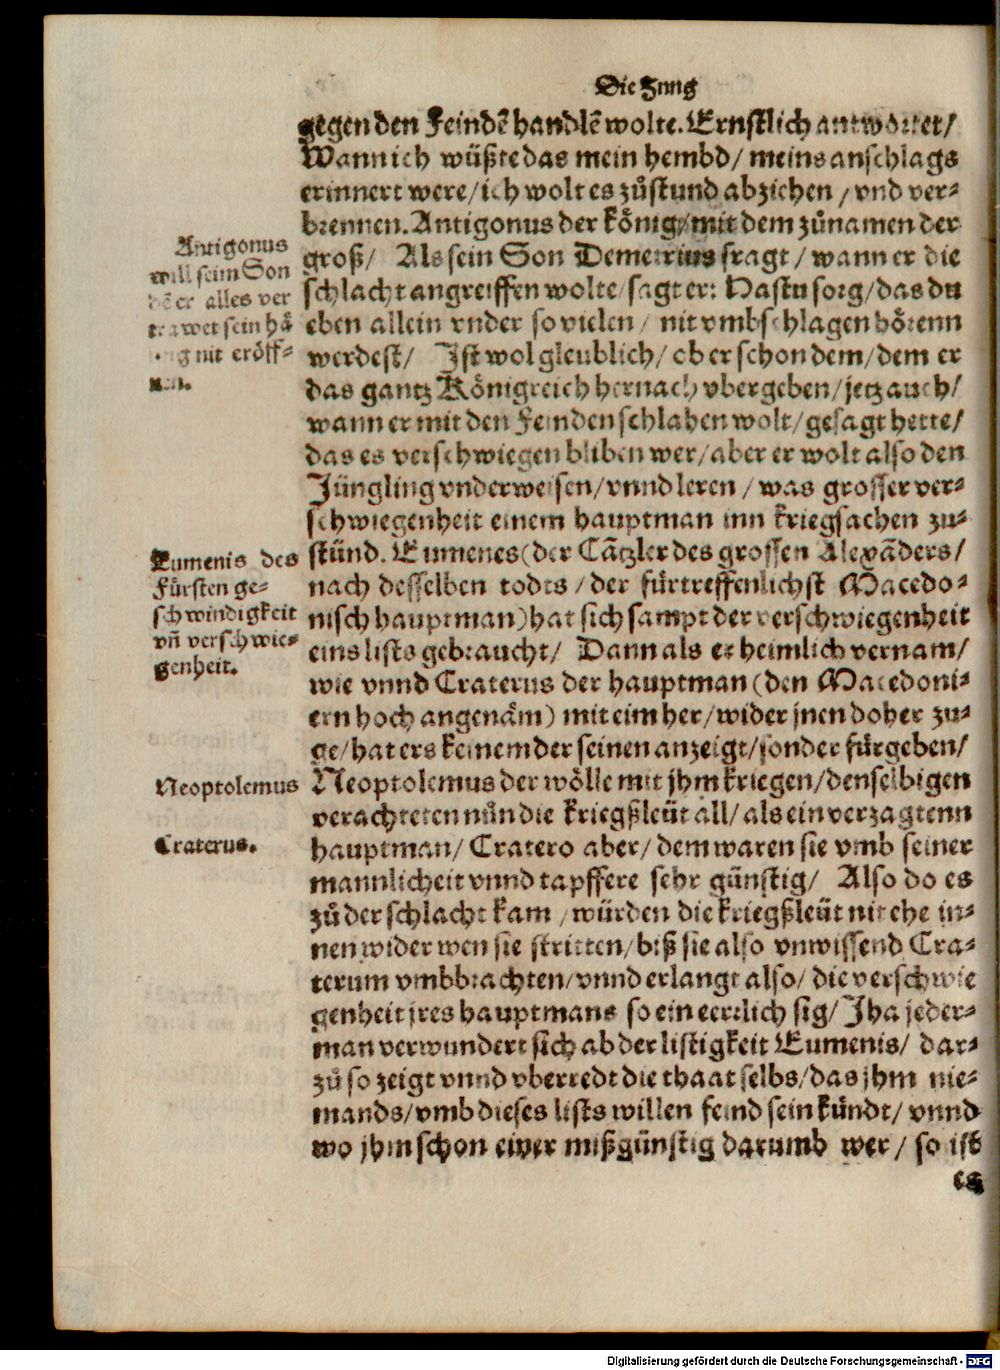 Die Zung
gegen den Feindẽ handlẽ wolte. Ernstlich antwortet/
Wann ich wüßte das mein hembd/ meins anschlags
erinnert were/ ich wolt es zůstund abziehen/ vnd ver-
brennen. Antigonus der könig/ mit dem zůnamen der
groß/ Als sein Son Demetrius fragt/ wann er die
schlacht angreiffen wolte/ sagt er: Hastu sorg/ das du
eben allein vnder so vielen/ nit vmbschlagen hörenn
werdest/ Ist wol gleublich/ ob er schon dem/ dem er
das gantz Königreich hernach vbergeben/ jetz auch/
wann er mit den Feinden schlahen wolt/ gesagt hette/
das es verschwiegen bliben wer/ aber er wolt also den
Jüngling vnderweisen/ vnnd leren/ was grosser ver-
schwiegenheit einem hauptman inn kriegsachen zu-
stünd. Eumenes (der Cãtzler des grossen Alexãders/
nach desselben todts/ der fürtreffenlichst Macedo-
nisch hauptman) hat sich sampt der verschwiegenheit
eins lists gebraucht/ Dann als er heimlich vernam/
wie vnnd Craterus der hauptman (den Macedoni-
ern hoch angenäm) mit eim her/ wider jnen doher zu-
ge/ hat ers keinem der seinen anzeigt/ sonder fürgeben/
Neoptolemus der wölle mit jhm kriegen/ denselbigen
verachteten nůn die kriegßleüt all/ als ein verzagtenn
hauptman/ Cratero aber/ dem waren sie vmb seiner
mannlicheit vnnd tapffere sehr günstig/ Also do es
zů der schlacht kam/ würden die kriegßleüt nit ehe in-
nen wider wen sie stritten/ biß sie also vnwissend Cra-
terum vmbbrachten/ vnnd erlangt also/ die verschwie
genheit jres hauptmans so ein eerrlich sig/ Jha jeder-
man verwundert sich ab der listigkeit Eumenis/ dar-
zů so zeigt vnnd vberredt die thaat selbs/ das jhm nie-
mands/ vmb dieses lists willen feind sein kündt/ vnnd
wo jhm schon einer mißgünstig darumb wer/ so ist
es
Antigonus
will seim Son
dẽ er alles ver
trawet sein hã
nit eröff-
nen.
Eumenis des
Fürsten ge-
schwindigkeit
vñ verschwie-
genheit.
Neoptolemus
Craterus.
Digitalisierung gefördert durch die Deutsche Forschungsgemeinschaft - DFG